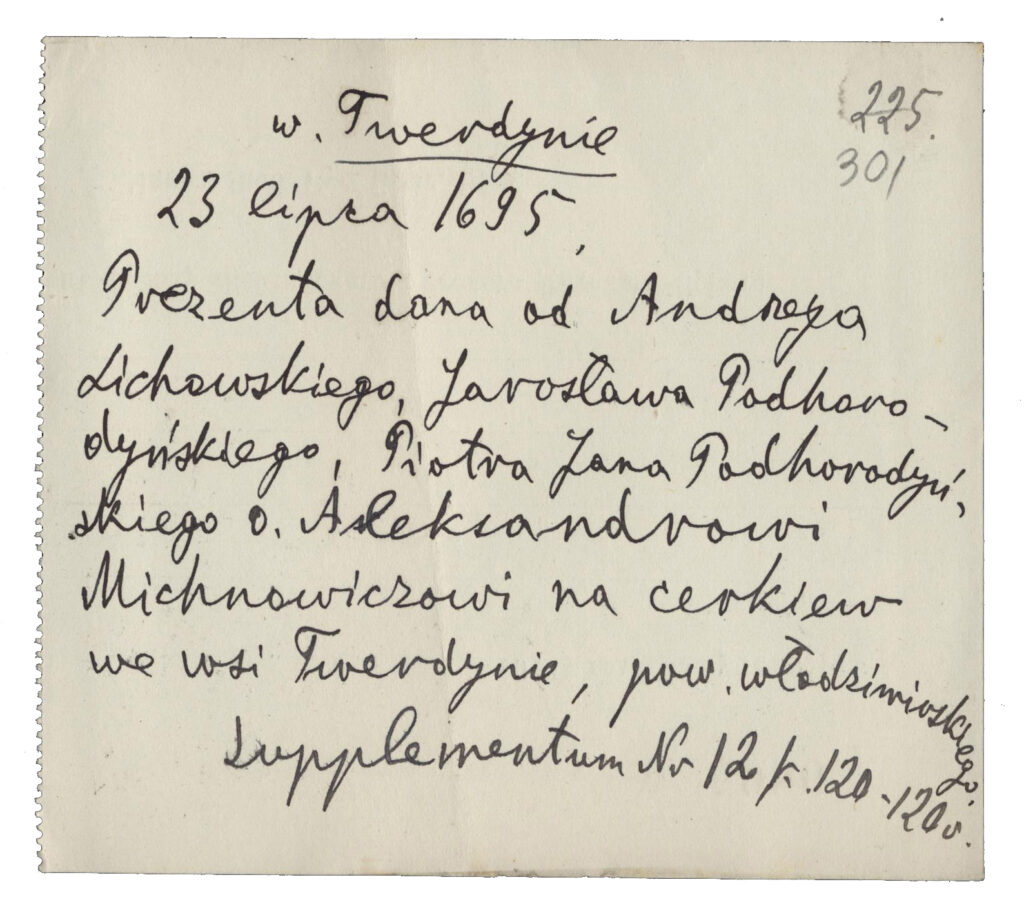 225.
301
w. Twerdynie
23 lipca 1695,
Prezenta dana od Andrzeja
Lichowskiego, Jarosława Podhoro-
dyńskiego, Piotra Jana Podhorodyń-
skiego o. Aleksandrowi
Michnowiczowi na cerkiew
we wsi Twerdynie, pow. włodzimirskiego.
Supplementum Nr 12 k. 120-120v.